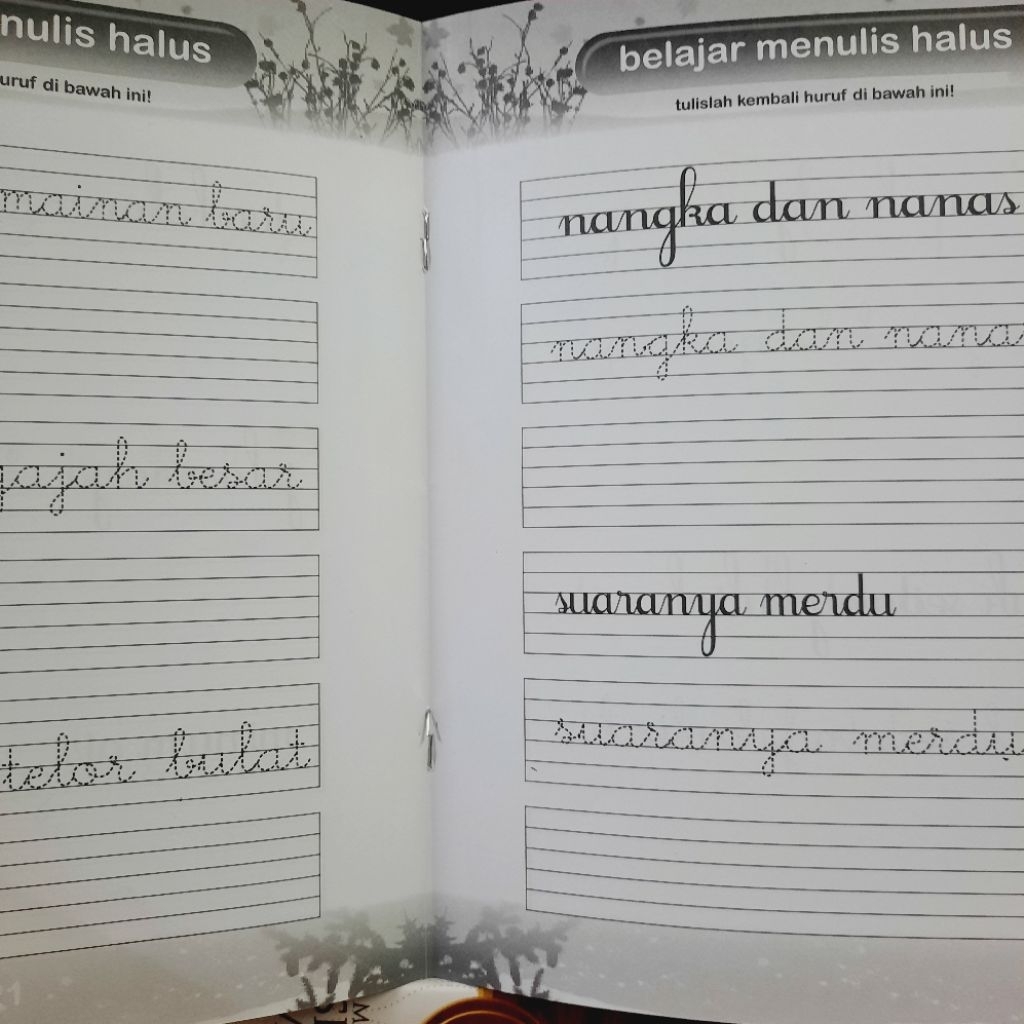 nulis halus
uruf di bawah ini!
mainan baru
gajah besar
telor bulat
1
belajar menulis halus
tulislah kembali huruf di bawah ini!
nangka dan nanas
nangka dan nanas
suaranya merdu
suaranya merdu